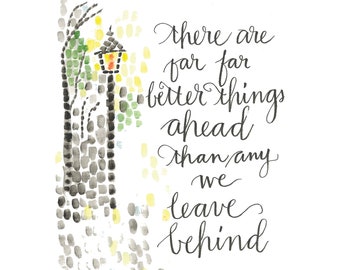 there are
far far
better things
ahead
than any
we
leave
behind